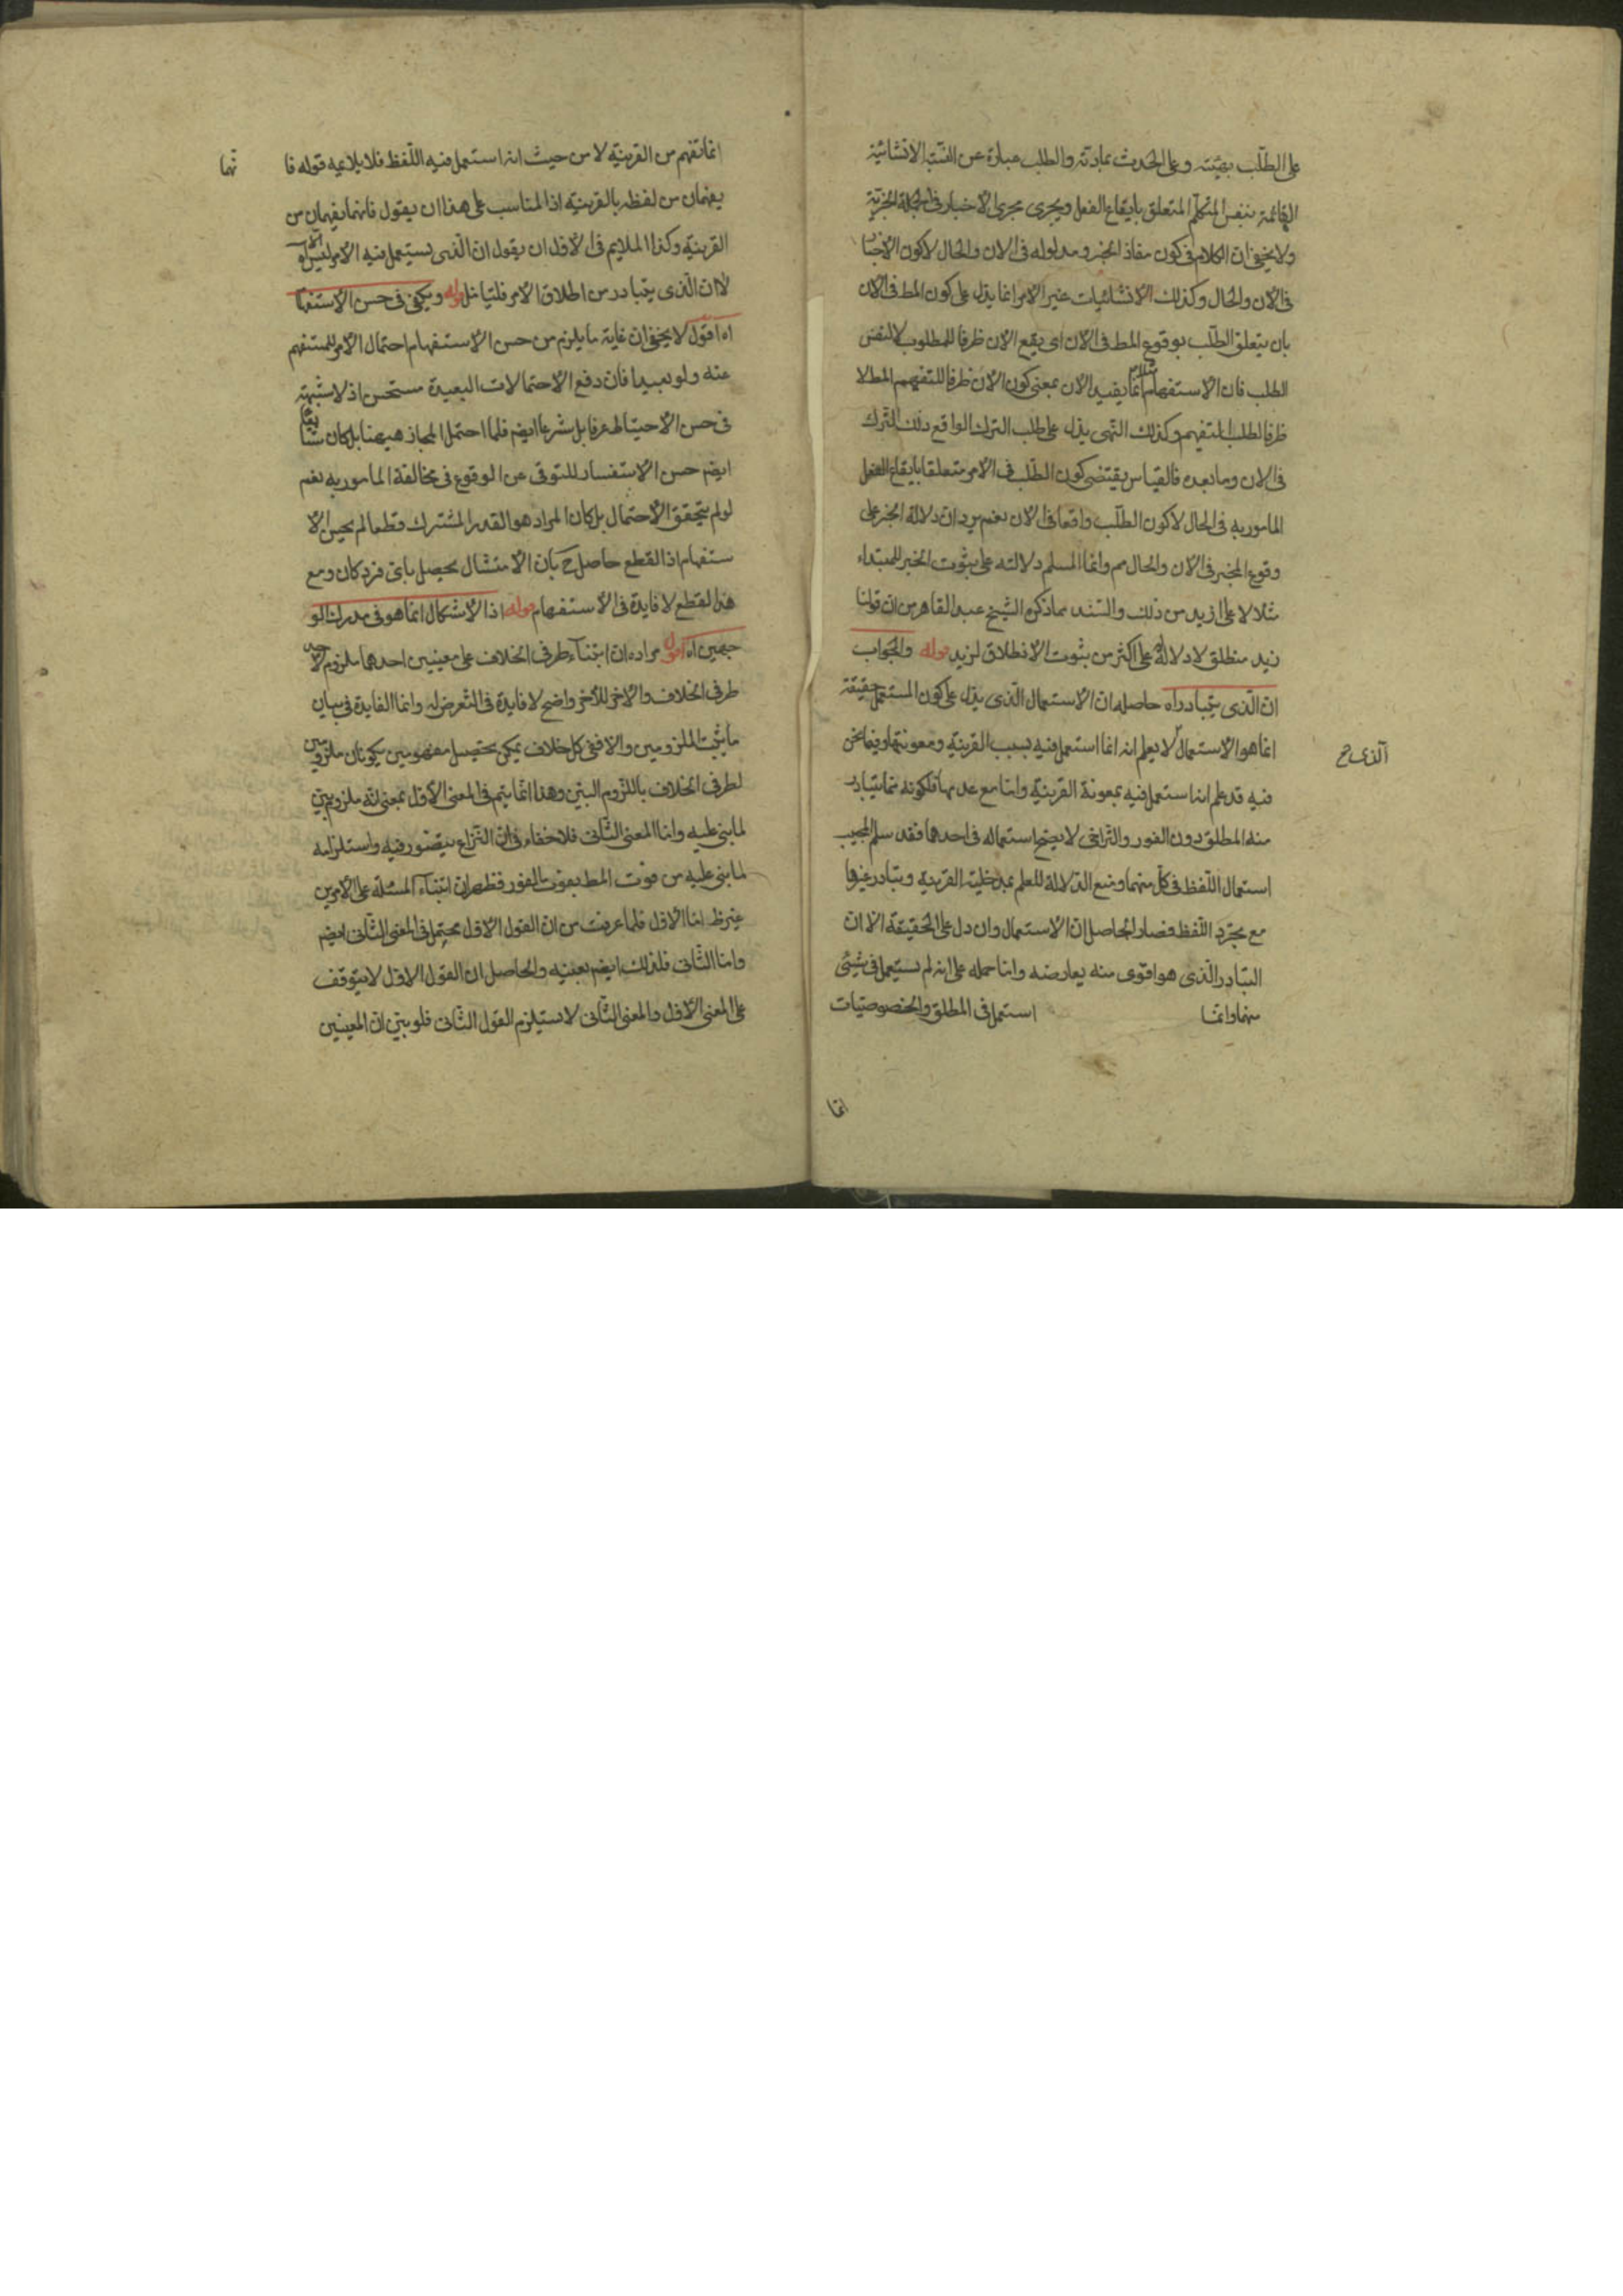 على الطلب بهيئته وعلى الحدث بمادته والطلب عبارة عن النسبة الانشائية
القائمة بنفس المتكلم المتعلق بايقاع الفعل ويجرى مجرى الاخبار فى الجملة الخبرية
ولا يخفى ان الكلام فى كون مفاد الخبر ومدلوله فى الان والحال لا كون الاخبار
فى الان والحال وكذلك الانشائيات غير الامر انما يدل على كون المط فى الان
بان يتعلق الطلب بوقوع المط فى الان اى يقع الان ظرفا للمطلوب لا لنفس
الطلب فان الاستفهام مثلا انما يفيد الان بمعنى كون الان ظرفا للتفهيم المط لا
ظرفا لطلب التفهيم وكذلك النهى يدل على طلب الترك الواقع ذلك الترك
فى الان وما بعده فالقياس يقتضى كون الطلب فى الامر متعلقا بايقاع الفعل
المامور به فى الحال لا كون الطلب واقعا فى الان نعم يرد ان دلالة الخبر على
وقوع المخبر فى الان والحال مم وانما المسلم دلالته على ثبوت الخبر للمبتداء
مثلا لا على ازيد من ذلك والسند ما ذكره الشيخ عبد القاهر من ان قولنا
زيد منطلق لا دلالة له على اكثر من ثبوت الانطلاق لزيد قوله والجواب
ان الذى يتبادر اه حاصله ان الاستعمال الذى يدل على كون المستعمل حقيقة
انما هو الاستعمال لا يعلم انه انما استعمل فيه بسبب القرينة ومعونتها وفيما نحن
الذى ح
فيه قد علم انه استعمل فيه بمعونة القرينة واما مع عدمها فلكونه مما يتبادر
منه المطلق دون الفور والتراخى لا يصح استعماله فى احدهما فقد سلم المجيب
استعمال اللفظ فى كل منهما ومنع الدلالة للعلم بمدخلية القرينة وتبادر غيرها
مع مجرد اللفظ فصار الحاصل ان الاستعمال وان دل على الحقيقة الا ان
التبادر الذى هو اقوى منه يعارضه واما حمله على انه لم يستعمل فى شيئى
منهما وانما استعمل فى المطلق والخصوصيات
انما
انما تفهم من القرينة لا من حيث انه استعمل فيه اللفظ فلا يلايمه قوله فا
نهما
يفهمان من لفظه بالقرينة اذ المناسب على هذا ان يقول فانهما يفهمان من
القرينة وكذا الملايم فى الاول ان يقول ان الذى يستعمل فيه الامر ليس الا
لا ان الذى يتبادر من اطلاق الامر فليتامل قوله ويكفى فى حسن الاستفها
اه اقول لا يخفى ان غاية ما يلزم من حسن الاستفهام احتمال الامر للمستفهم
عنه ولو بعيدا فان دفع الاحتمالات البعيدة مستحسن اذ لا شبهة
فى حسن الاحتياط عرفا بل شرعا ايضم فلما احتمل المجاز هيهنا بل كان شايعا
ايضم حسن الاستفسار للتوقى عن الوقوع فى مخالفة المامور به نعم
لو لم يتحقق الاحتمال بل كان المراد هو القدر المشترك قطعا لم يحسن الا
ستفهام اذ القطع حاصل ح بان الامتثال يحصل باى فرد كان ومع
هذا القطع لا فايدة فى الاستفهام قوله اذ الاشكال انما هو فى مدرك الو
جهين اه اقول مراده ان ابتناء طرفى الخلاف على معنيين احدهما ملزوم لاحد
طرفى الخلاف والاخر للاخر واضح لا فايدة فى التعرض له وانما الفايدة فى بيان
ما يثبت الملزومين والا ففى كل خلاف يمكن تحصيل مفهومين يكونان ملزومين
لطرفى الخلاف باللزوم البين وهذا انما يتم فى المعنى الاول بمعنى انه ملزوم بين
لما بنى عليه واما المعنى الثانى فلا خفاء فى ان النزاع يتصور فيه واستلزامه
لما بنى عليه من فوت المط بفوت الفور فظهر ان ابتناء المسئلة على الامرين
غير ظ اما الاول فلما عرفت من ان القول الاول محتمل فى المعنى الثانى ايضم
واما الثانى فلذلك ايضم بعينه والحاصل ان القول الاول لا يتوقف
على المعنى الاول والمعنى الثانى لا يستلزم القول الثانى فلو بين ان المعنيين